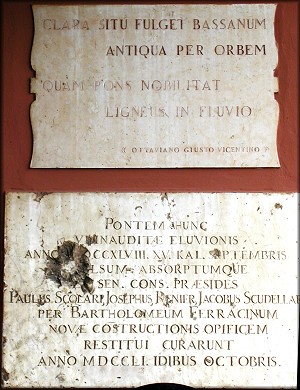 CLARA SITU FULGET BASSANUM
ANTIQUA PER ORBEM
QUAM PONS NOBILITAT
LIGNEUS IN FLUVIO
OTTAVIANO GIUSTO VICENTINO
PONTEM HUNC
INAUDITÆ ELUVIONIS
ANNO CCXLVIII. XV. KAL. SEPTEMBRIS
ULSUM ABSORPTUMQUE
SEN. CONS. PRÆSIDES
PAULUS SCOLARI, JOSEPHUS RENIER, JACOBUS SCUDELLARI
PER BARTHOLOMEUM FERRACINUM
NOVÆ COSTRUCTIONIS OPIFICEM
RESTITUI CURARUNT
ANNO MDCCLI. IDIBUS OCTOBRIS.